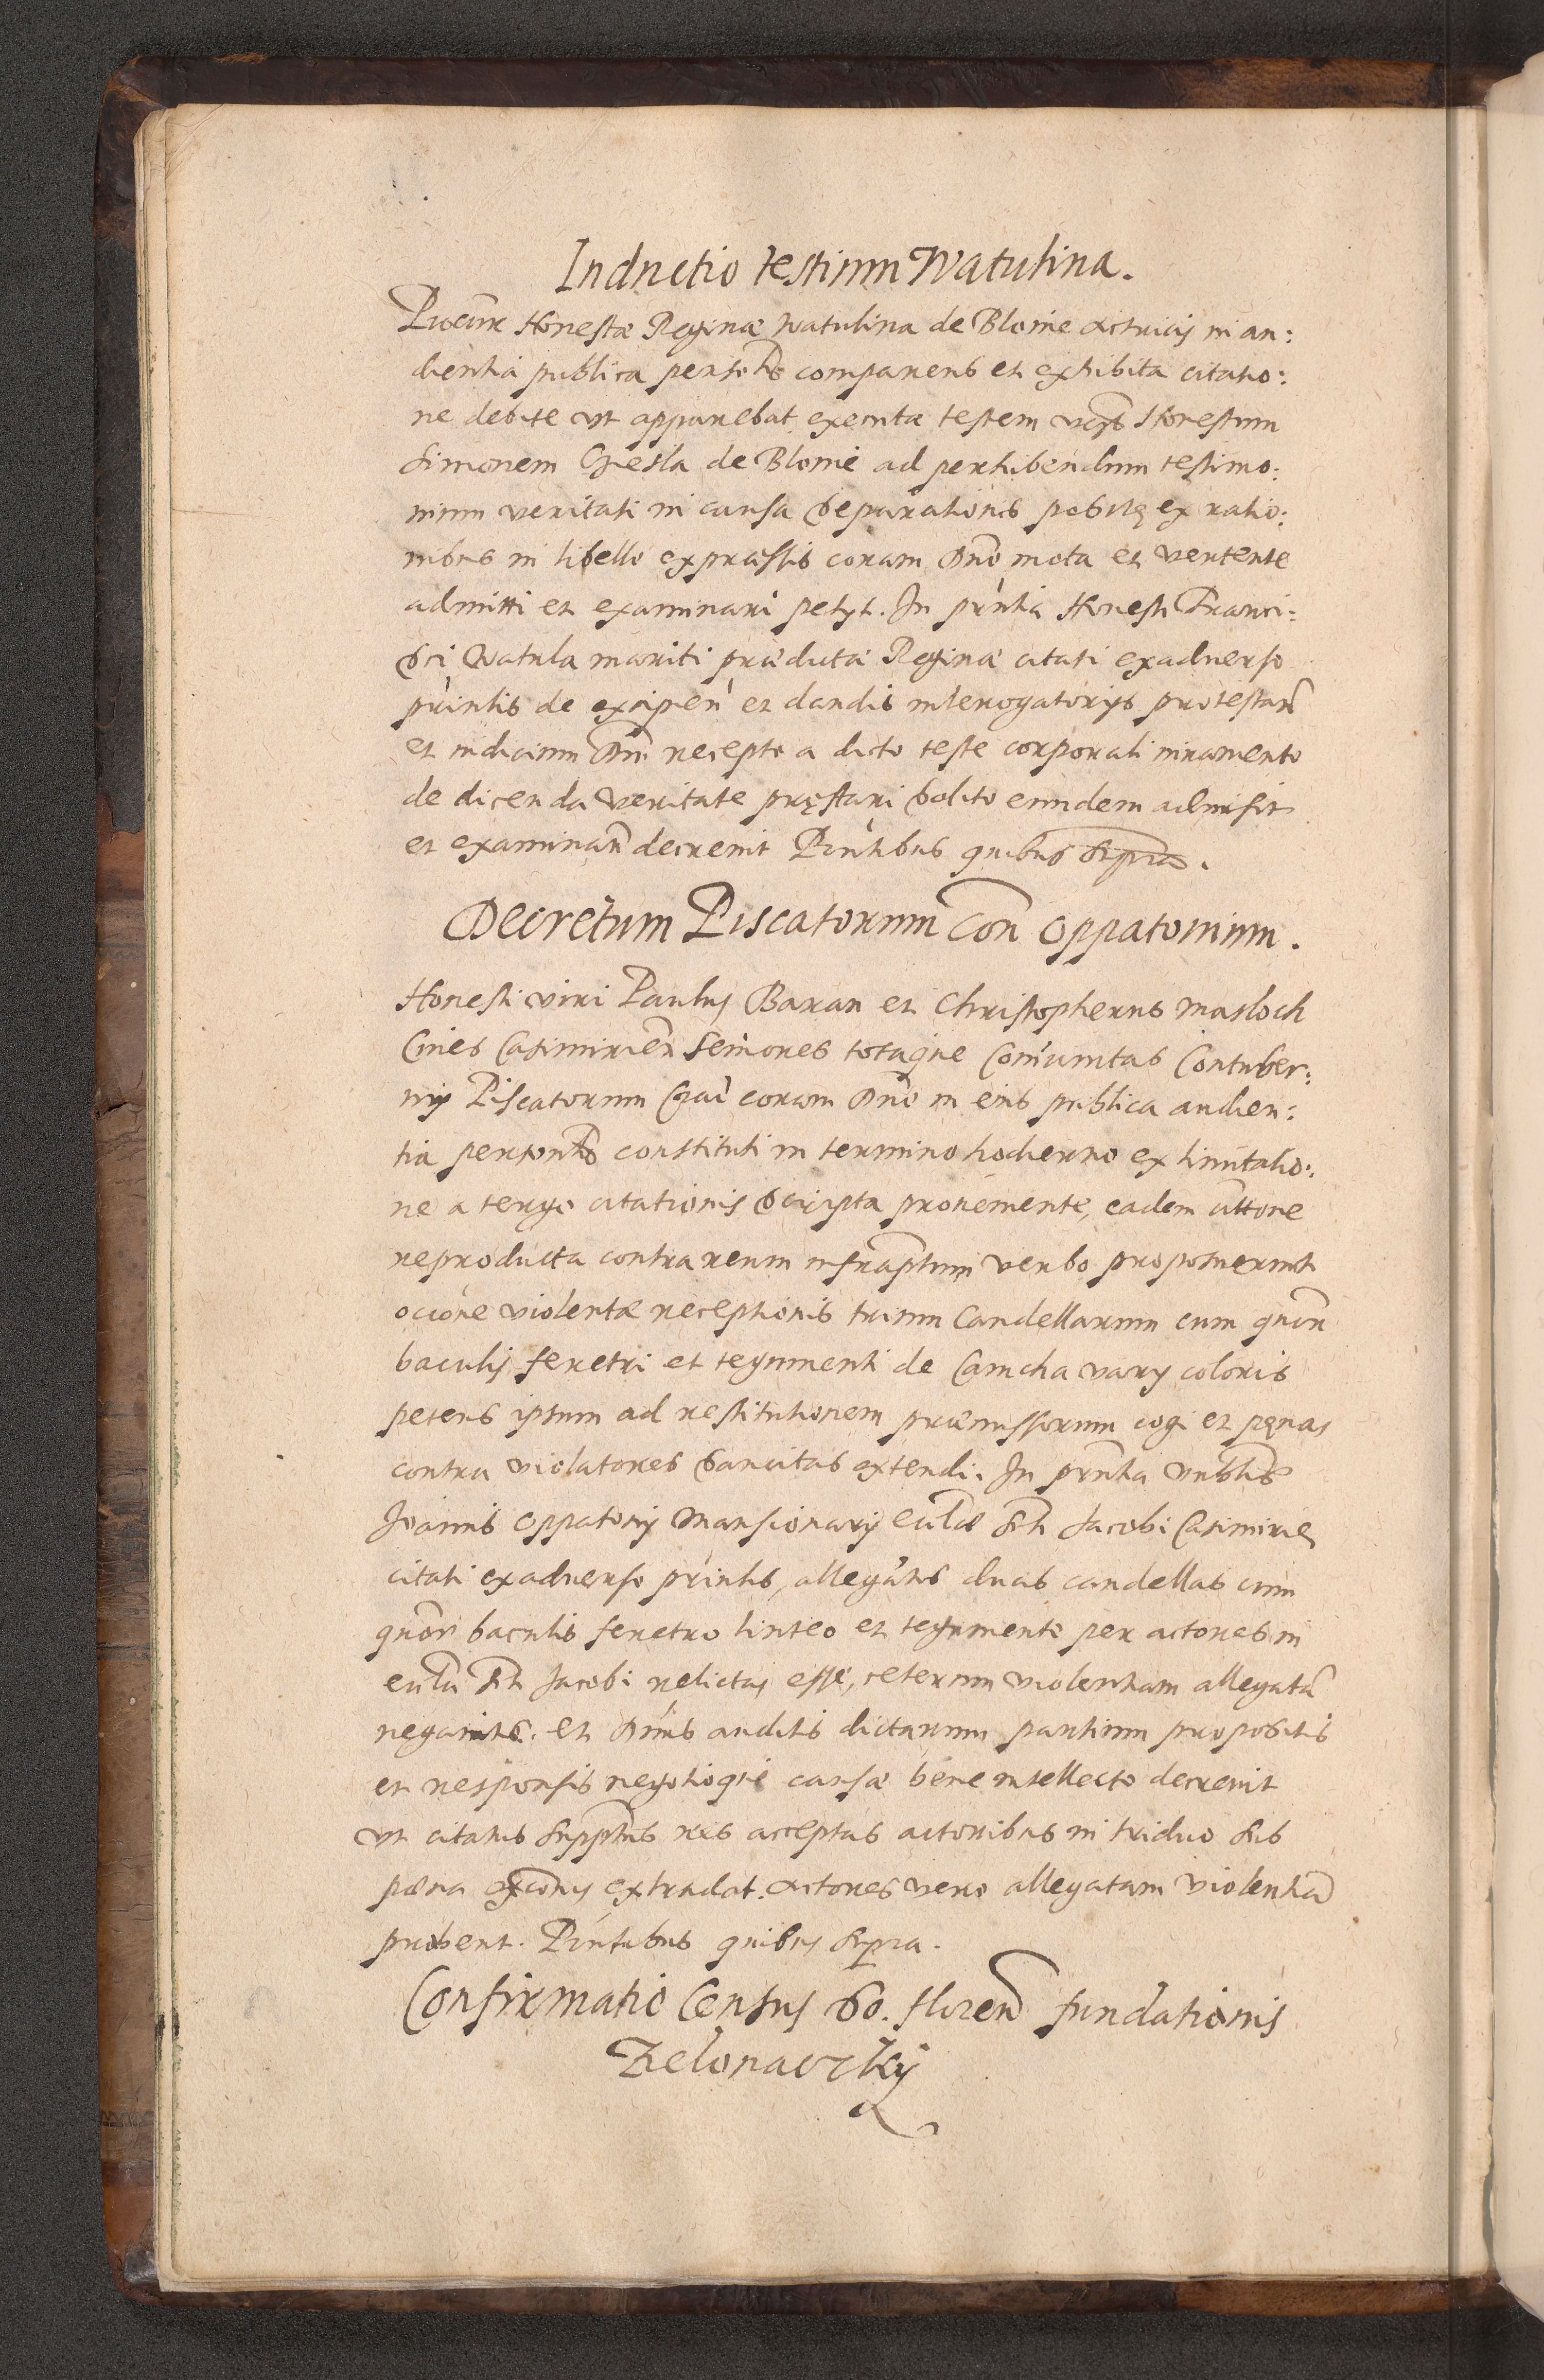 Inductio testium Watulina.
Procur Honestæ Reginæ Watulina de Blonie Actricis in au:
dientia publica person͠s comparens et exhibita citatio:
ne debite vt apparebat executa testem Honestum
Simonem de Blonie ad perhibendum testimo:
nium veritati in causa separationis positę ex ratio:
nibus in libello expræssis coram Dn͠o mota et vertente
admitti et examinari petyt. In pn͠tia Honesti Franci:
sci Watula mariti prædictæ Reginæ citati exaduerso
prin͠tis de excipen͠ et dandis interogatorys protestan͠
et iudicium Dn͠i recepto a dicto teste corporali iuramento
de dicenda veritate pręstari solito eundem admisit
et examinan͠ decreuit Prn͠tibus quibus supra.
Decretum Piscatorum Con͠ Oppatouium.
Honesti viri Paulus Baran et Christopherus Masloch
Ciues Casimirien͠ Seniores totaque Com͠unitas Contuber:
nij Piscatorum Craci͠ coram Dn͠o in eius publica audien:
tia person͠s constituti in termino hodierno ex limitatio:
ne a tergo citationis scripta proueniente, eadem citt͠one
reproducta contra reum infrasp͠tum verbo proposuerunt
occ͠one violentæ receptionis trium Candellarum cum quatuor͠
baculis feretri et tegumenti de Camcha varij coloris
petens ipsum ad restitutionem præmissorum cogi et pęnas
contra violatores sancitas extendi. In prn͠tia Vn͠blis
Joannis Oppatouij Mansionarij Eccl͠æ S͠ti Jacobi Casimirie͠
citati exaduerso prin͠tis, allegan͠tis duas candellas cum
quatuor͠ baculis feretro linteo et tegumento per actores in
eccl͠ia S͠ti Jacobi relictas esse, ceterum violentiam allegata͠
negantis. et Dn͠us auditis dictarum partium propositis
et responsis negotioque causæ bene intellecto decreuit
vt citatus supp͠tus res acceptas actoribus in triduo sub
pœna exco͠nis extradat. Actores vero allegatam violentia͠
probent. Prn͠tibus quibus supra.
Confirmatio Census 60. floren͠ fundationis
Zielonaczkij